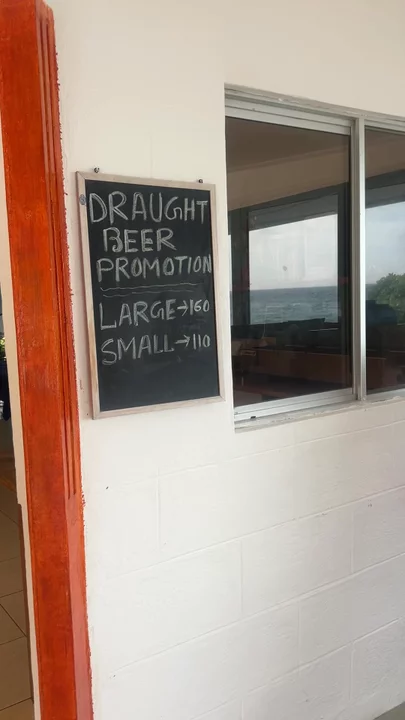 DRAUGHT
BEER
PROMOTION
LARGE→160
SMALL→110